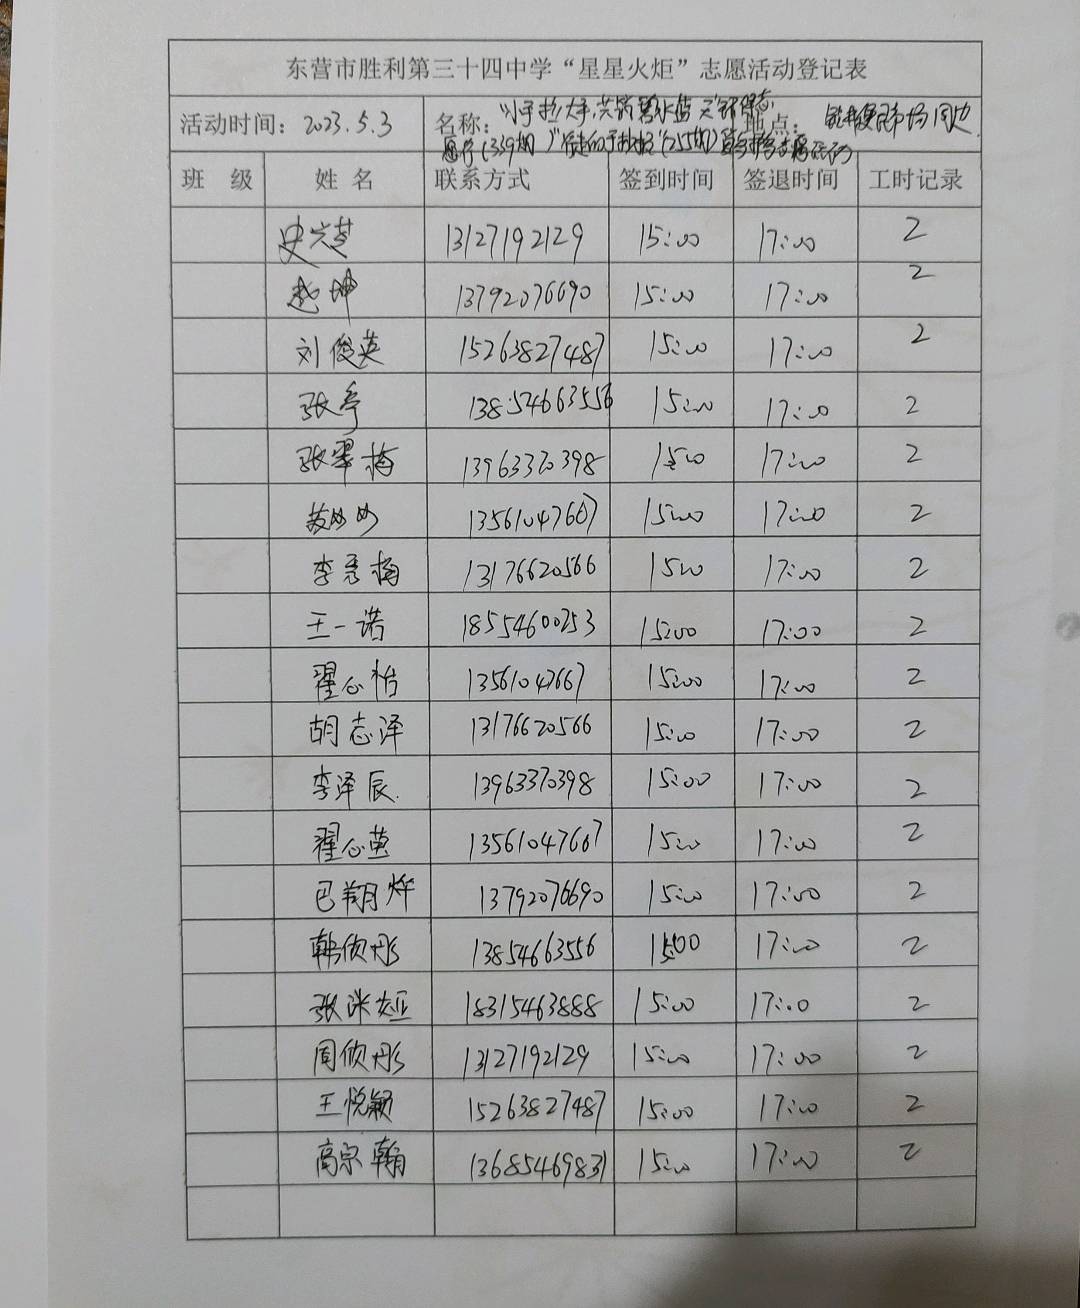 东营市胜利第三十四中学“星星火炬”志愿活动登记表
活动时间：2023.5.3 名称：“小手拉大手,共筑碧水蓝天 地点：
(359期)” (255期)
班 级 姓 名 联系方式 签到时间 签退时间 工时记录
13127192129 15:00 17:00 2
赵坤 13792076690 15:00 17:00 2
刘俊英 15263827487 15:00 17:00 2
张亭 13854663556 15:00 17:00 2
张翠梅 13963370398 1500 17:00 2
13561047667 15:00 17:00 2
李秀梅 13176620566 1500 17:00 2
王一诺 18554600253 15:00 17:00 2
翟心怡 13561047667 15:00 17:00 2
胡志泽 13176620566 15:00 17:00 2
李泽辰. 13963370398 15:00 17:00 2
翟心莹 13561047667 15:00 17:00 2
巴翔烨 13792076690 15:00 17:00 2
韩欣彤 13854663556 1500 17:00 2
张 18315463888 15:00 17:00 2
周欣彤 13127192129 15:00 17:00 2
王悦颖 15263827487 15:00 17:00 2
高宗翰 13685469831 15:00 17:00 2